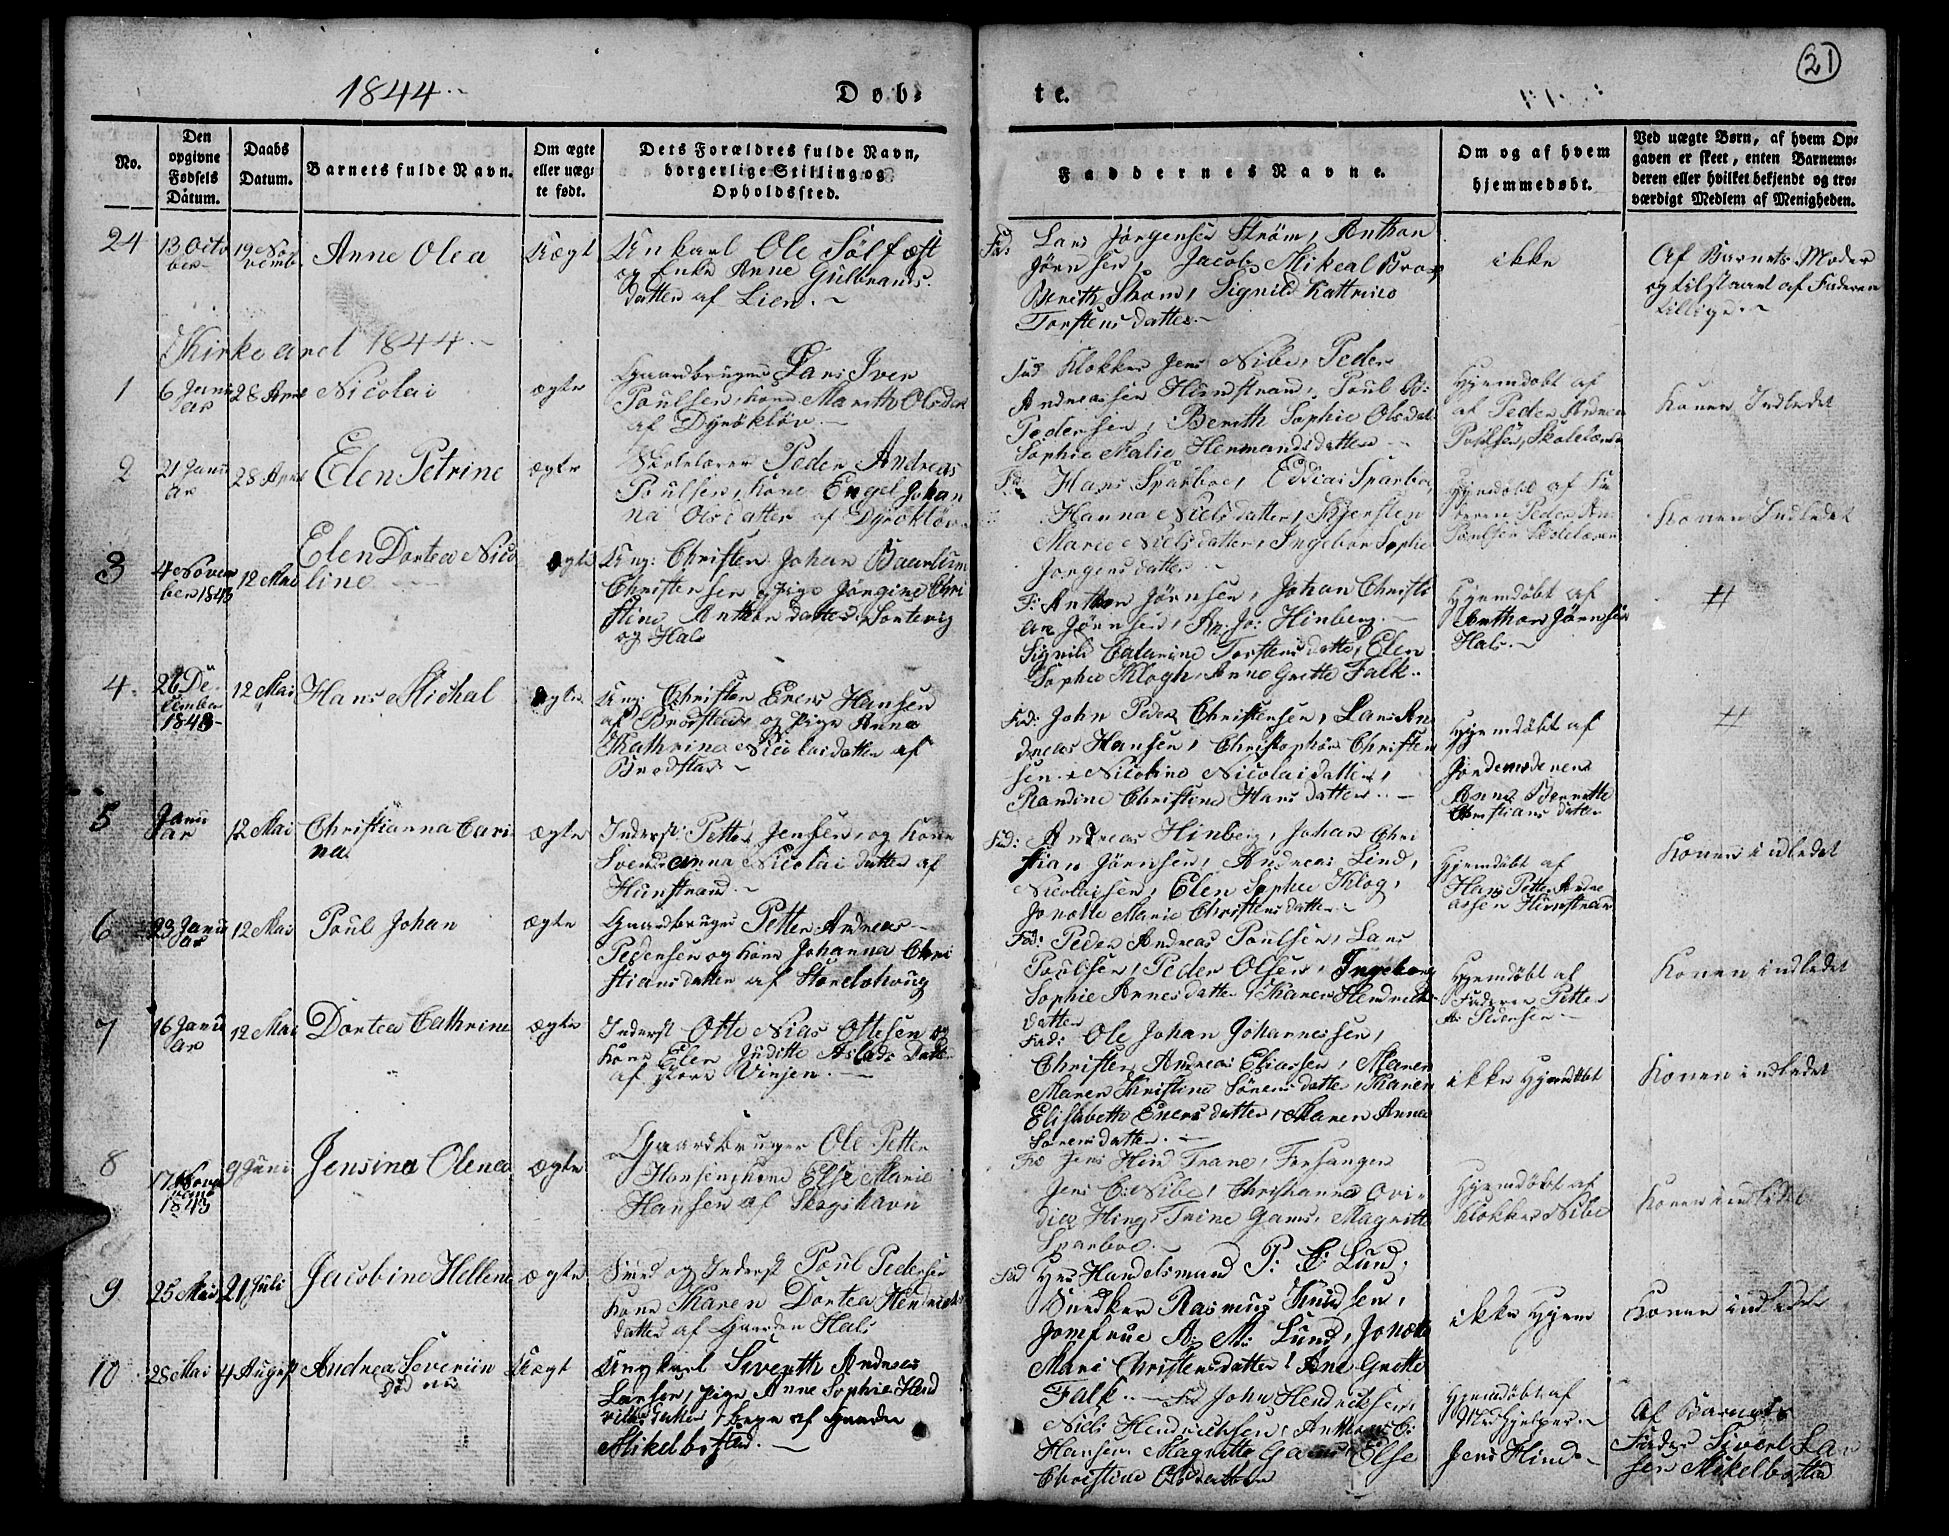 21
1844
Døb-
te.
No.
Den opgivne Fødsels Datum.
Daabs Datum.
Barnets fulde Navn.
Om ægte eller uæg-te født.
Dets Forældres fulde Navn, borgerlige Stilling og Opholdssted.
Faddernes Navne.
Om og af hvem hjemmedøbt.
Ved uægte Børn, af hvem Op-gaven er skeet, enten Barnemo-deren eller hvilket bekjendt og tro-værdigt Medlem af Menigheden.
24
13 Octo
ber
19 No
vemb
Anne Olea
Uægt
Unkarl Ole Sølfæst
og Enke Anne Gulbrands
datter af Lien.
Fad:
Lars Jørgensen Strøm, Anthon
Jørnsen, Jacob Mikeal Brox
Berith Strøm, Signild Kattrine
Torstens datter
ikke
Af Barnets Moder
og tilstaaet af Faderen
tillige.
Kirkeaaret 1844
1
6 Janu
ar
28 April
Nicolai
ægte
Gaardbruger Lars Iver
Poulsen, kone Marith Olsdat
af Dyrøkløv
Fad Klokker Jens Nibe, Peder
Andreassen Hunstrand, Poul
Pedersen, Berith Sophie Olsdat
Sophie Malie Hermandsdatter
Hjemdøbt af
af Peder Andrea
Poulsen, Skolelærer
Konen Indledet
2
21 Janu
ar
28 April
Elen Petrine
ægte
Skolelærer Peder Andreas
Poulsen, kone Engel Johan
na Olsdatter af Dyrøkløv
Fa
Hans Sparboe, Eddias Sparboe
Hanna Nielsdatter, Kjersten
Marie Nielsdatter, Ingebor Sophie
Jørgens datter
Hjemdøbt af Fa
deren Peder An
Poulsen Skolelærer
Konen Indledet
3
4 Novem
ber 1843
12 Mai
Elen Dortea Nico
line
ægte
Ung: Christen Johan Baurlim
Christensen og pige Jørgine Chri
stine Anthon datter, Sørtevig
og Hals
F: Anthon Jørnsen, Johan Christi
an Jørnsen, An: Jo: Hinberg.
Signild Catarine Torstens datte, Elen
Sophie Klogh, Anne Grette Falk
Hjemdøbt af
Anthon Jørnsen
Hals
#
4
26 De
cember
1843
12 Mai
Hans Michal
ægte
Ung: Christen Evers Hansen
af Brøstad og Pige Anna
Kathrina Nicolaidatter af
Brøstad
Fad: John Peder Christensen, Lars An
dreas Hansen, Christophør Christen
sen, Nicoline Nicolaidatter,
Randine Christine Hans datter
Hjemdøbt af
Jordemoderen
Anna Berrette
Christians datter
#
5
Janu
ar
12 Mai
Christianna Cari
na
ægte
Inderst Petter Jensen, og kone
Svendsanna Nicolai datter af
Hunstrand
Fad: Andreas Hinberg, Johan Chri
stian Jørnsen, Andreas Lind,
Nicolaisen, Elen Sophie Klog,
Jonette Marie Christens datter
Hjemdøbt af
Hans Petter Andre
assen Hunstrand
Konen indledet
6
23 Janu
ar
12 Mai
Poul Johan
ægte
Gaardbruger Petter Andreas
Pedersen og kone Johanna Chri
stians datter af
Fad: Peder Andreas Poulsen, Lars
Poulsen, Peder Olsen, Ingeborg
Sophie Arnesdatter, Karen Hendrick
datter
Hjemdøbt af
Faderen Petter
A: Pedersen
Konen indledet
7
16 Janu
ar
12 Mai
Dortea Cathrine
ægte
Inderst Otte Nias Ottesen og
kone Elen Juditte Aslads Datte
af store Vinjen.
Fad: Ole Johan Johannessen,
Christen Andreas Eliassen, Maren
Maren Kristine Sørens datter, Karen
Elisabeth Evers datter, Maren Anna
Sørensdatter.
ikke Hjemdøbt
Konen indledet
8
17 Nov
emb
1843
9 Juni
Jensina Olena
ægte
Gaardbruger Ole Petter
Hansen, kone Else Marie
Hansen af Skogshavn
Fad Jens Hind Trane, Forsanger
Jens C: Nibe, Christianna Ovi-
dice Hing, Trine Gams, Magritte
Sparboe.
Hjemdøbt af
klokker Nibe
Konen indledet
9
25 Mai
21 Juli
Jacobine Hellene
ægte
Smed og Inderst Poul Pedersen
kone Karen Dortea Hendricks
datter af Gaarden Hals
Fad Hr Handelsmand P: C: Lund,
Snedker Rasmus Knudsen,
Jomfrue A: M: Lund, Jonette
Marie Christensdatter, Ane Grette
Falk.
ikke Hjem
Konen indledet
10
28 Mai
4 August
Andrea Severiin
død nu
Uægt
Ungkarl Siverth Andreas
Larsen, pige Anne Sophie Hend
ricks datter, begge af Gaarden
Mikelbostad.
Fad John Hendricksen
Niels Hendricksen, Anthon C:
Hansen Magritte Gams Else
Christine Olsdatter
Hjemdøbt af
Medhjelper
Jens Hind
Af Barnets
Fader Sivert Lar
sen Mikelbostad